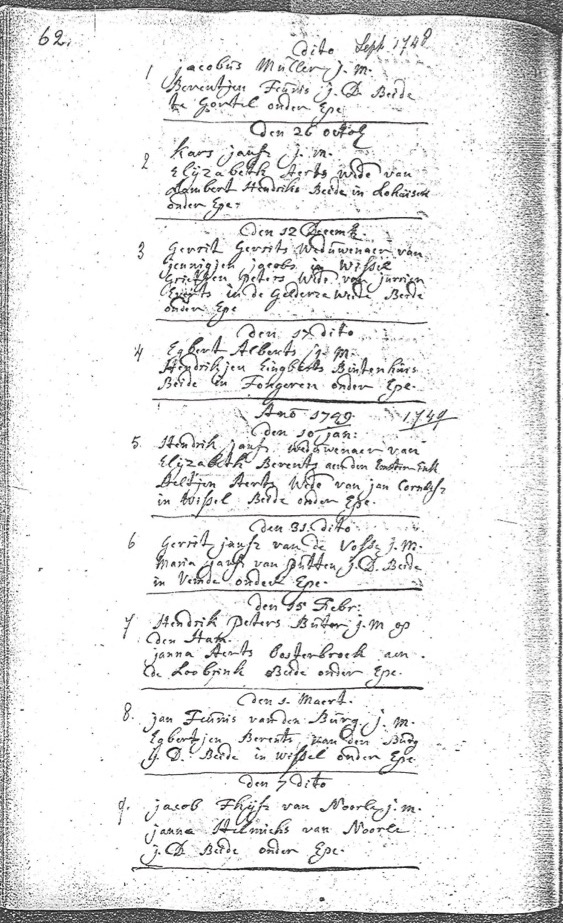 62.
dito Sept 1748
1 jacobus Muller j. m.
Berentjen Feunis j. D. Beide
te Gortel onder Epe
den 26 octob
2 Kars jansz j. m.
Elijzabeth Aerts wede van
Lambert Hendriks Beide in
onder Epe.
den 12 Decemb.
3 Gerrit Gerrits weduwenaer van
jennigjen jacobs in Wissel
Grietjen peters wede van jurrien
Everts in de Gelderze Beide
onder Epe
den 17 dito
4 Egbert Alberts j. m.
Hendrikjen Eingberts Buitenhuis
Beide in Tongeren onder Epe.
Ano 1749. 1749
den 10 jan:
5. Hendrik jansz weduwenaer van
Elijzabeth Berents aen den
Aeltjen Aerts wede van jan Cornelisz
in Wissel Beide onder Epe.
den 31. dito
6 Gerrit jansz van de j. M.
Maria jansz van putten j. D. Beide
in Vemde onder Epe.
den 15 Febr:
7 Hendrik peters Buter j. m op
den Ham.
janna Aerts Oosterbroek aen
de Beide onder Epe.
den 1. Maert.
8. jan Feunis van den Burg. j. m.
Egbertjen Berents van den Burg
j. D. Beide in Wissel onder Epe
den 7 dito
9. jacob Thijsz van Noorle j. m.
janna Helmichs van Noorle
j. D Beide onder Epe.